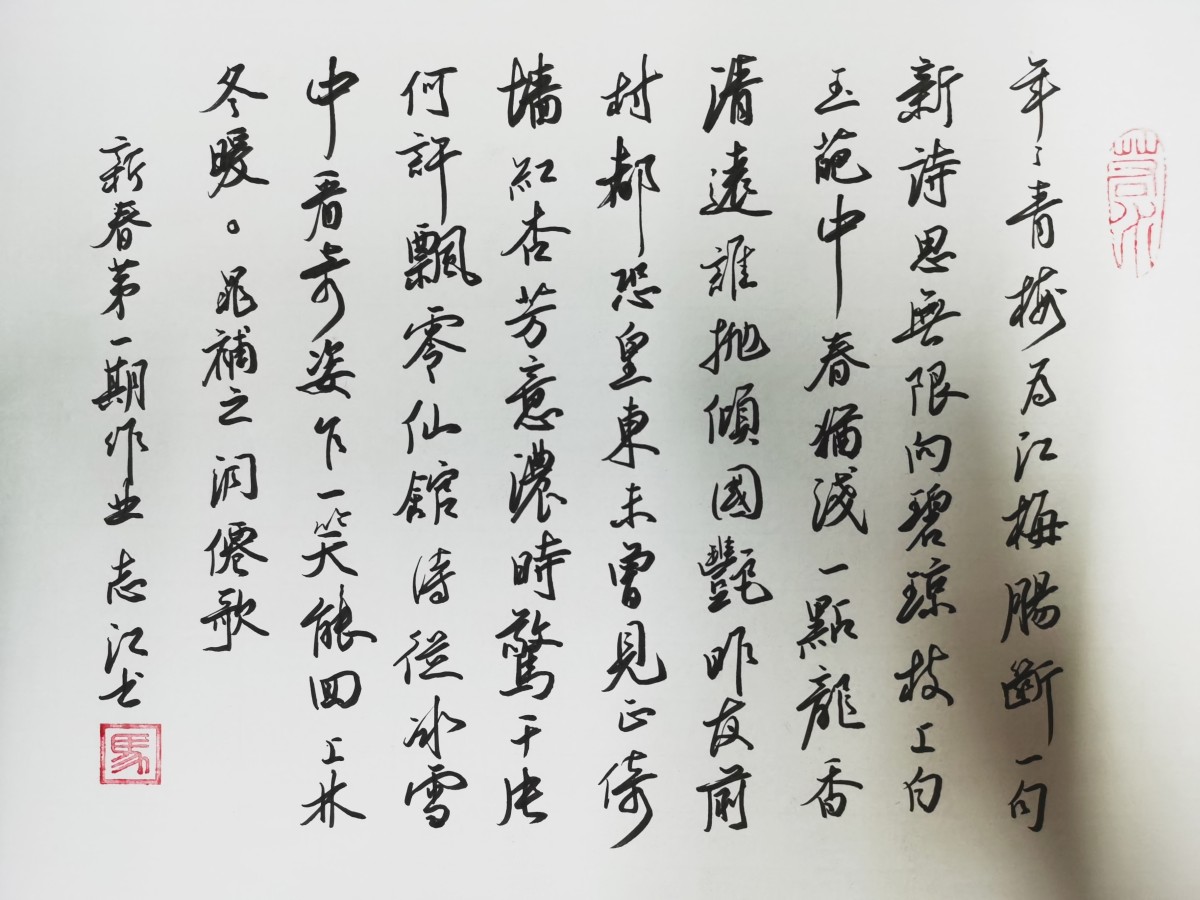 年〻青梅为江梅腸斷一句
新詩思無限向碧瓊枝上白
玉葩中春猶淺一點龍香
清遠誰抛傾國艷昨夜前
村都恐皇東未曾見正倚
墻紅杏芳意濃時驚千片
何許飄零仙館待從冰雪
中看奇姿乍一笑能回上林
冬暖。晁補之洞僊歌
新春第一期作业志江书
馬